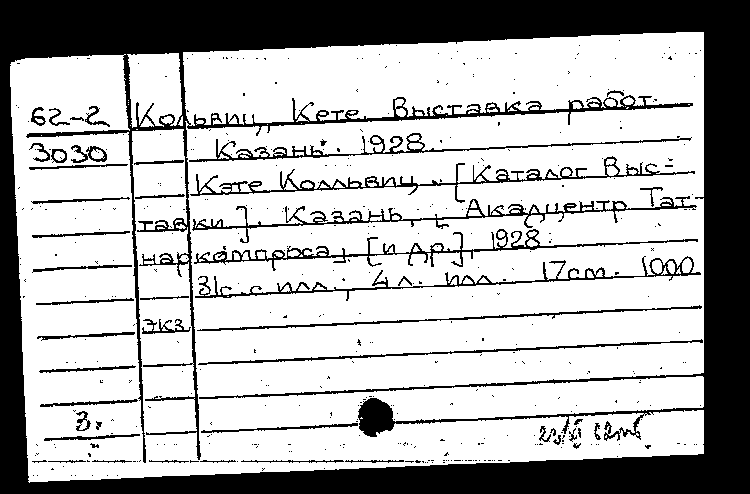 62-2 Кольвиц, Кете. Выставка работ.
3030 Казань. 1928.
Кэте Колльвиц. [Каталог Выс-
тавки]. Казань, [Академцентр Тат-
наркомпроса] [и др.], 1928.
31с. с илл.; 4 л. илл. 17см. 1000
экз
3.